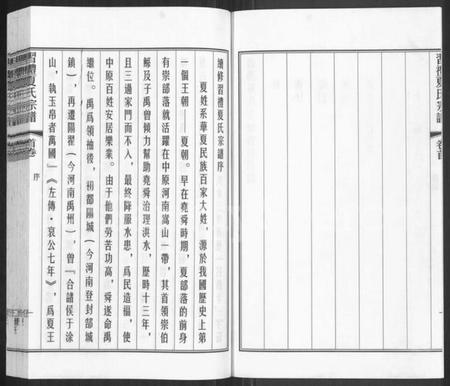 習禮夏氏宗譜 卷首
續修習禮夏氏宗譜序
夏姓系華夏民族百家大姓，源於我國歷史上第
一個王朝——夏朝。早在堯舜時期，夏部落的前身
有崇部落就活躍在中原河南嵩山一帶，其首領崇伯
鯀及子禹曾傾力幫助堯舜治理洪水，歷時十三年，
且三過家門而不入，最終降服水患，爲民造福，使
中原百姓安居樂業。由于他們勞苦功高，舜遂命禹
繼位。禹爲領袖後，初都陽城（今河南登封郜城
鎮），再遷陽翟（今河南禹州），曾『合諸侯于涂
山，執玉帛者萬國』《左傳·哀公七年》，爲夏王
習禮夏氏宗譜 首卷 序